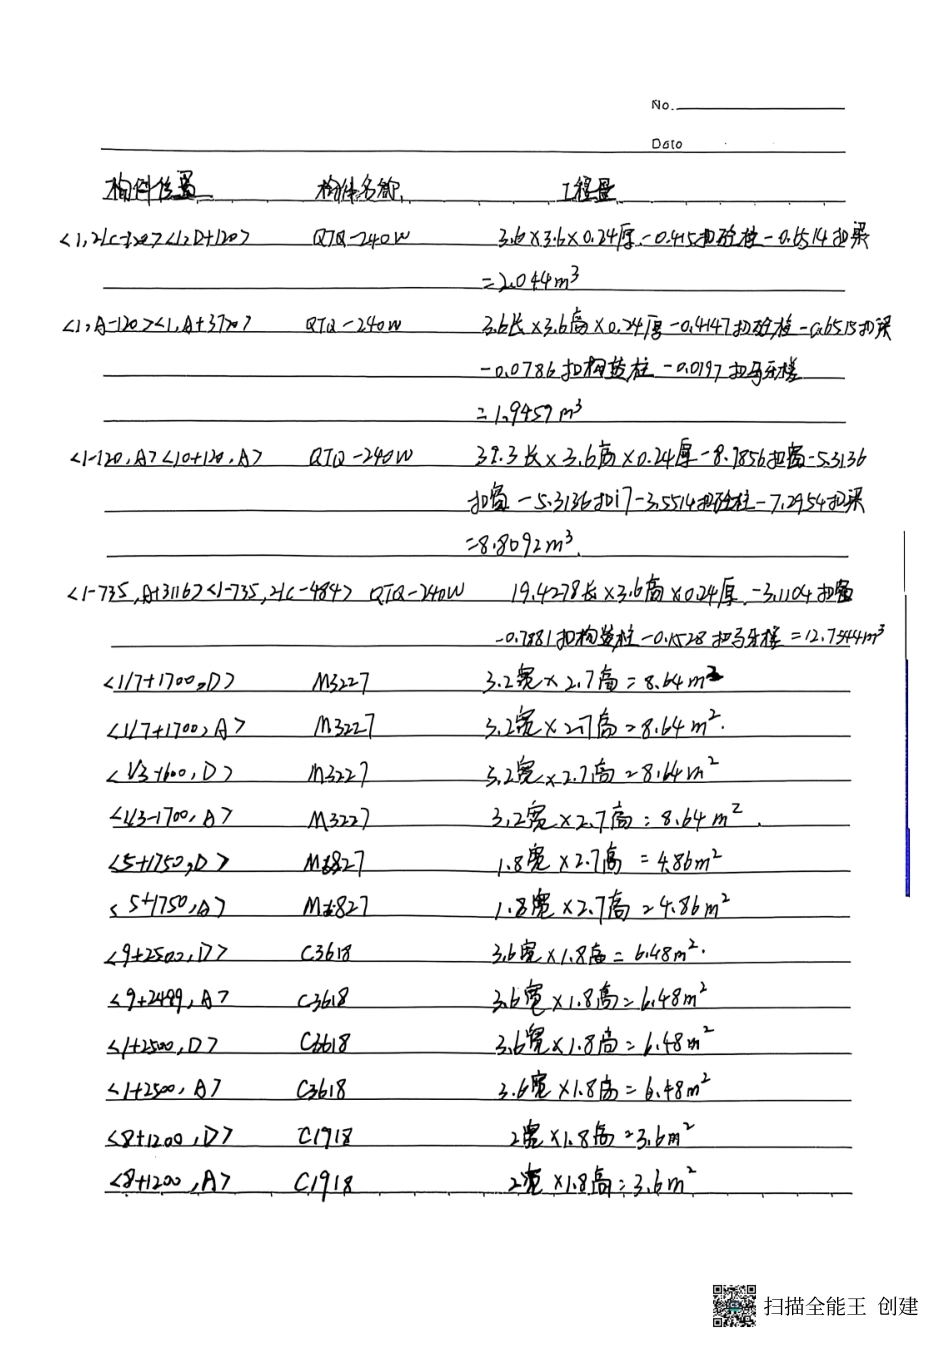 No.
Date
构件位置 构件名称 工程量
<1,2/C-120><1,D+120> QTQ-240W 3.6×3.6×0.24厚-0.415扣砼柱-0.6514扣梁
=2.044m³
<1,A-120><1,A+3720> QTQ-240W 3.6长×3.6高×0.24厚-0.4147扣砼柱-0.6515扣梁
-0.0786扣构造柱-0.0197扣马牙槎
=1.9457m³
<1-120,A><10+120,A> QTQ-240W 39.3长×3.6高×0.24厚-8.9856扣窗-5.3136
扣窗-5.3136扣门-3.5514扣砼柱-7.2954扣梁
=8.8092m³.
<1-735,A+3116><1-735,2/C-484> QTQ-240W 19.4278长×3.6高×0.24厚-3.1104扣窗
-0.7881扣构造柱-0.1528扣马牙槎=12.7344m³
<1/7+1700,D> M3227 3.2宽×2.7高=8.64m²
<1/7+1700,A> M3227 3.2宽×2.7高=8.64m².
<1/3+600,D> M3227 3.2宽×2.7高=8.64m²
<1/3-1700,A> M3227 3.2宽×2.7高=8.64m².
<5+1750,D> M1827 1.8宽×2.7高=4.86m²
<5+1750,A> M1827 1.8宽×2.7高=4.86m²
<9+2500,D> C3618 3.6宽×1.8高=6.48m².
<9+2499,A> C3618 3.6宽×1.8高=6.48m²
<1+2500,D> C3618 3.6宽×1.8高=6.48m²
<1+2500,A> C3618 3.6宽×1.8高=6.48m²
<8+1200,D> C1918 2宽×1.8高=3.6m²
<8+1200,A> C1918 2宽×1.8高=3.6m²
扫描全能王 创建